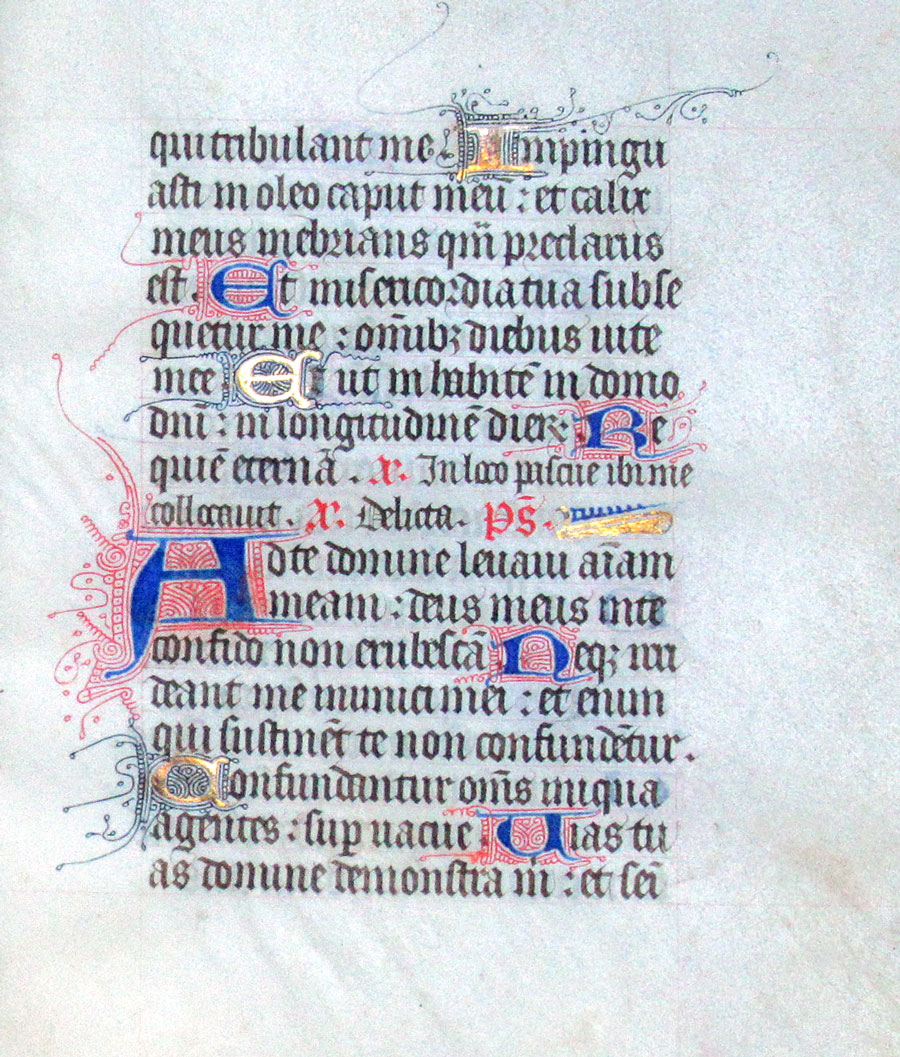 qui tribulant me Impingu
asti in oleo caput meū : et calix
meus inebrians qm̄ preclarus
est . Et misericordia tua subse
quetur me : om̄ibꝫ diebus uite
mee Et ut inhabitē in domo
dn̄i : in longitudinē dierꝝ Re
quiē eternā . ꝟ. In loco pascue ibi me
collocauit . ꝟ. Delicta . p̄s .
Ad te domine leuaui aīam
meam : deus meus in te
confido non erubescā Neqꝫ irri
deant me inimici mei : et enim
qui sustinēt te non confundētur .
Confundantur om̄s iniqua
agentes : suꝑ uacue Uias tu
as domine demonstra m̄ : et sei